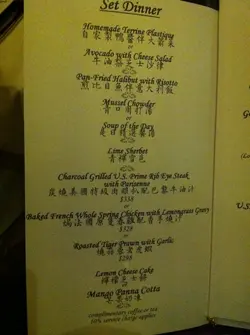 Set Dinner
Homemade Terrine Plastique
自家製鴨醬伴火箭菜
or
Avocado with Cheese Salad
牛油梨芝士沙律
Pan-Fried Halibut with Risotto
煎比目魚伴意大利飯
Mussel Chowder
青口周打湯
or
Soup of the Day
是日精選餐湯
Lime Sherbet
青檸雪芭
Charcoal Grilled U.S. Prime Rib Eye Steak
with Parizenne
炭燒美國特級肉眼扒配巴黎牛油汁
$338
or
Baked French Whole Spring Chicken with Lemongrass Gravy
焗法國原隻春雞配香茅燒汁
$298
or
Roasted Tiger Prawn with Garlic
燒蒜蓉老虎蝦
$298
Lemon Cheese Cake
檸檬芝士餅
or
Mango Panna Cotta
芒果奶凍
complimentary coffee or tea
10% service charge applies